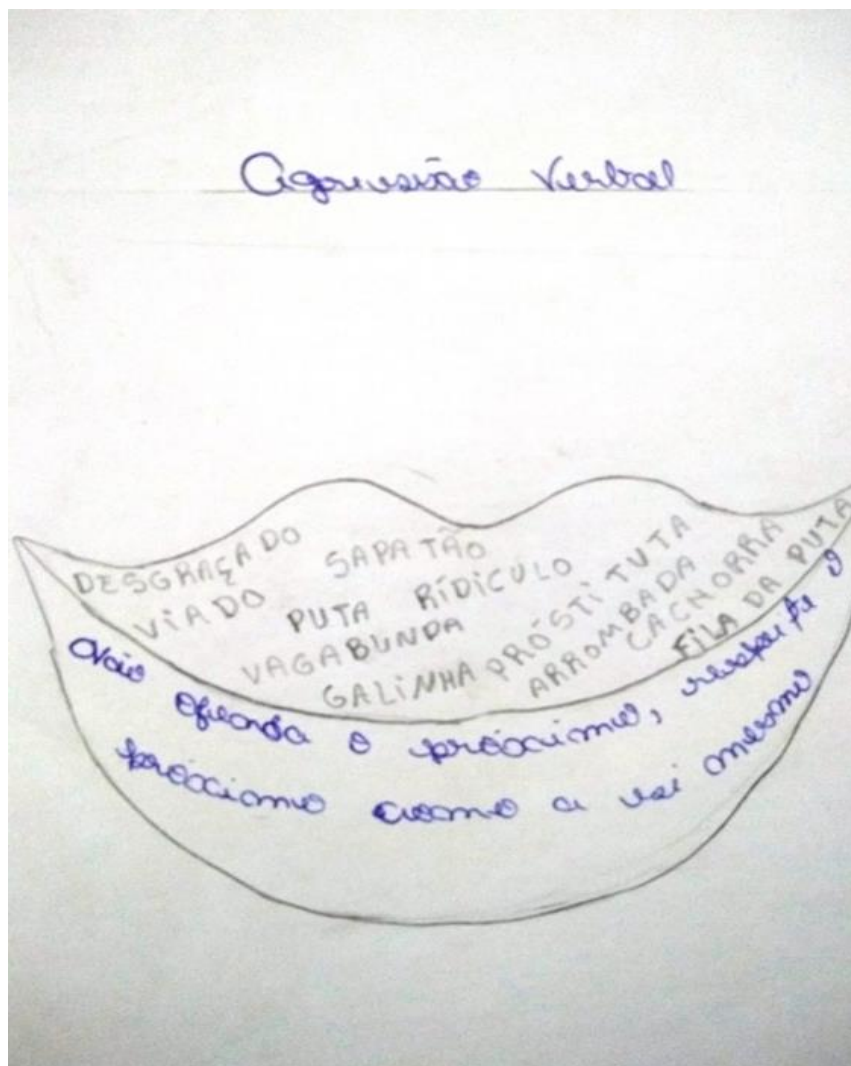 Agressão Verbal
DESGRAÇADO
VIADO
SAPATÃO
PUTA RÍDICULO
VAGABUNDA
GALINHA
PRÓSTITUTA
ARROMBADA
CACHORRA
FILA DA PUTA
Não ofenda o próximo, respeite o
próximo como a si mesmo